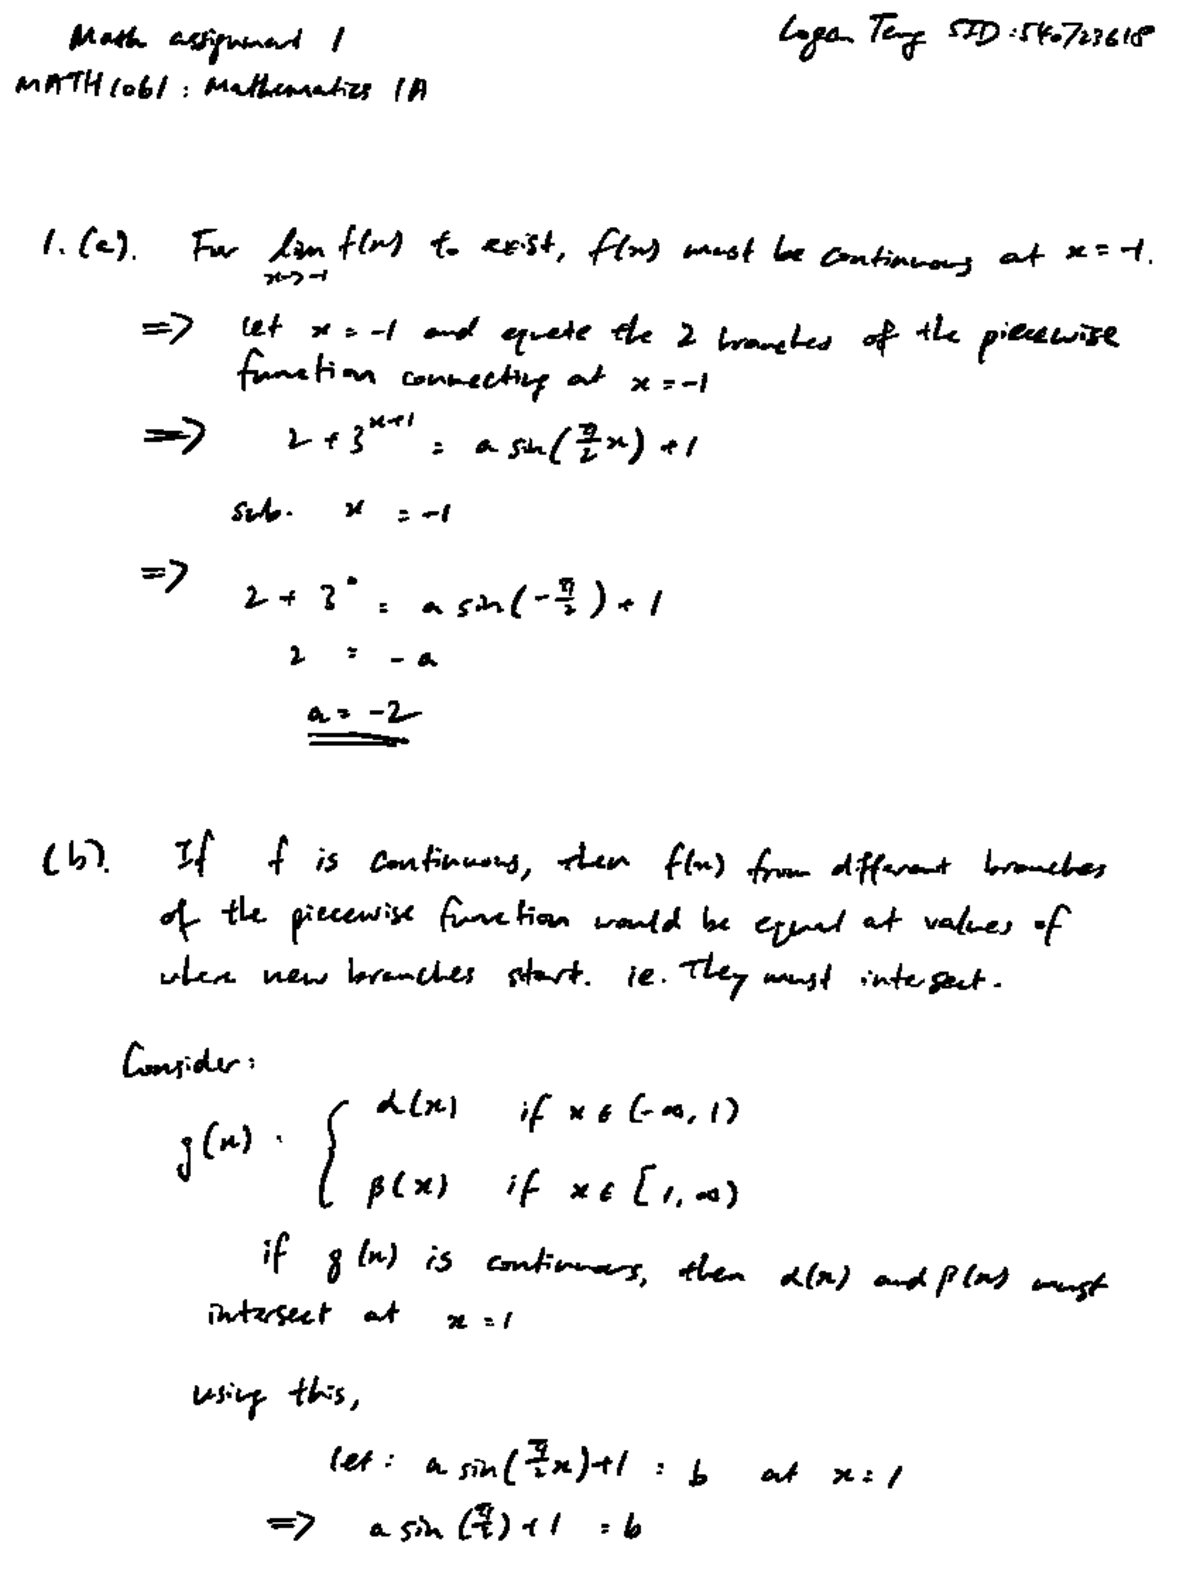 Math assignment 1
Logan Teng SID:540723618
MATH1061: Mathematics 1A
1.(a). For lim f(x) to exist, f(x) must be continuous at x = -1.
x->-1
=> let x = -1 and equate the 2 branches of the piecewise
function connecting at x = -1
=> 2 + 3^(x+1) = a sin(π/2 x) + 1
sub. x = -1
=> 2 + 3^0 = a sin(-π/2) + 1
2 = -a
a = -2
(b). If f is continuous, then f(x) from different branches
of the piecewise function would be equal at values of
where new branches start. ie. They must intersect.
Consider:
g(x) = { α(x) if x ∈ (-∞, 1)
β(x) if x ∈ [1, ∞)
if g(x) is continuous, then α(x) and β(x) must
intersect at x = 1
using this,
let: a sin(π/2 x)+1 = b at x = 1
=> a sin(π/2)+1 = b